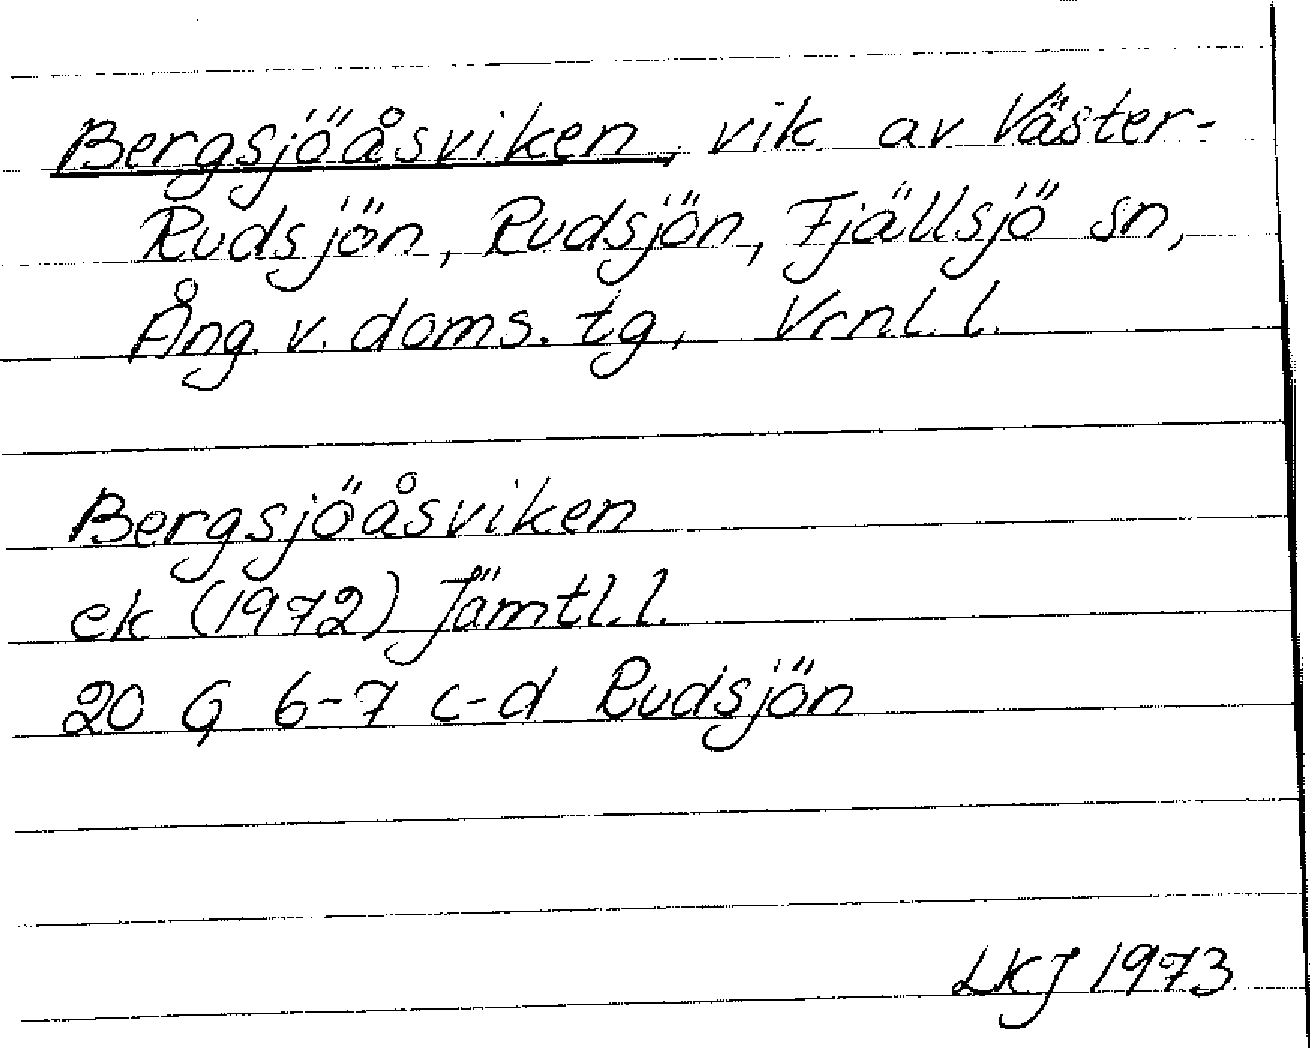 Bergsjöåsviken, vik av Väster-
Rudsjön, Rudsjön, Fjällsjö sn,
Ång. v. doms. tg, Vrnl. l.
Bergsjöåsviken
ek (1972) Jämtl. l.
20 G 6-7 c-d Rudsjön
LKJ 1973